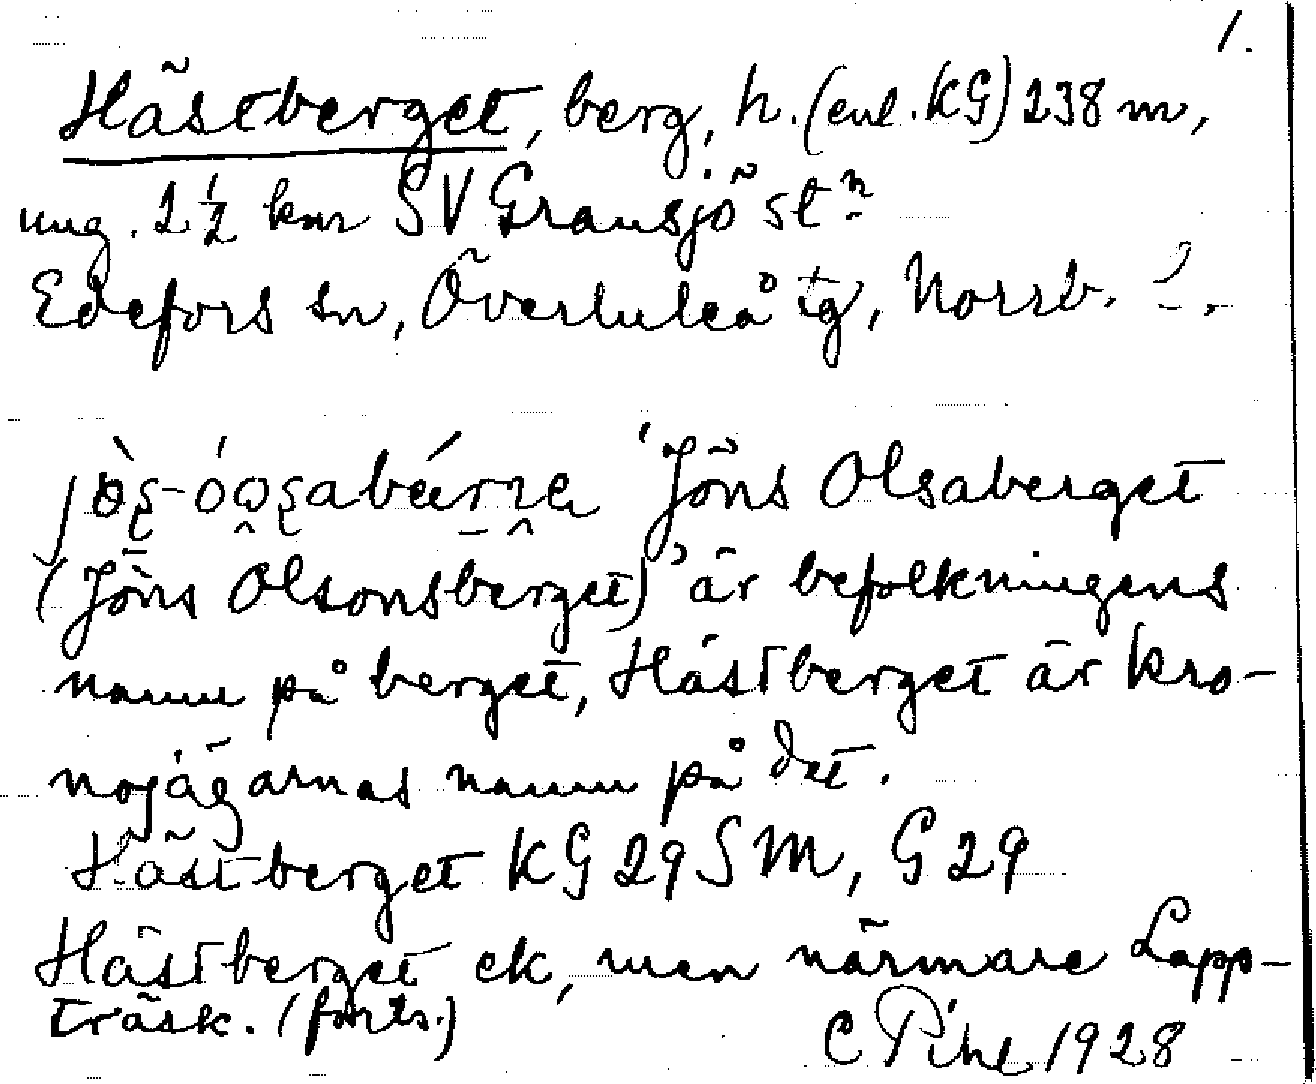 1.
Hästberget, berg, h. (enl. KG) 238 m,
ung. 2½ km SV Gransjö stn
Edefors sn, Överluleå tg, Norrb. l.
'Jöns Olsaberget
(Jöns Olsonsberget)' är befolkningens
namn på berget, Hästberget är kro-
nojägarnas namn på det.
Hästberget KG 29 SM, G 29
Hästberget ek, men närmare Lapp-
träsk. (forts.)
C Pihl 1928